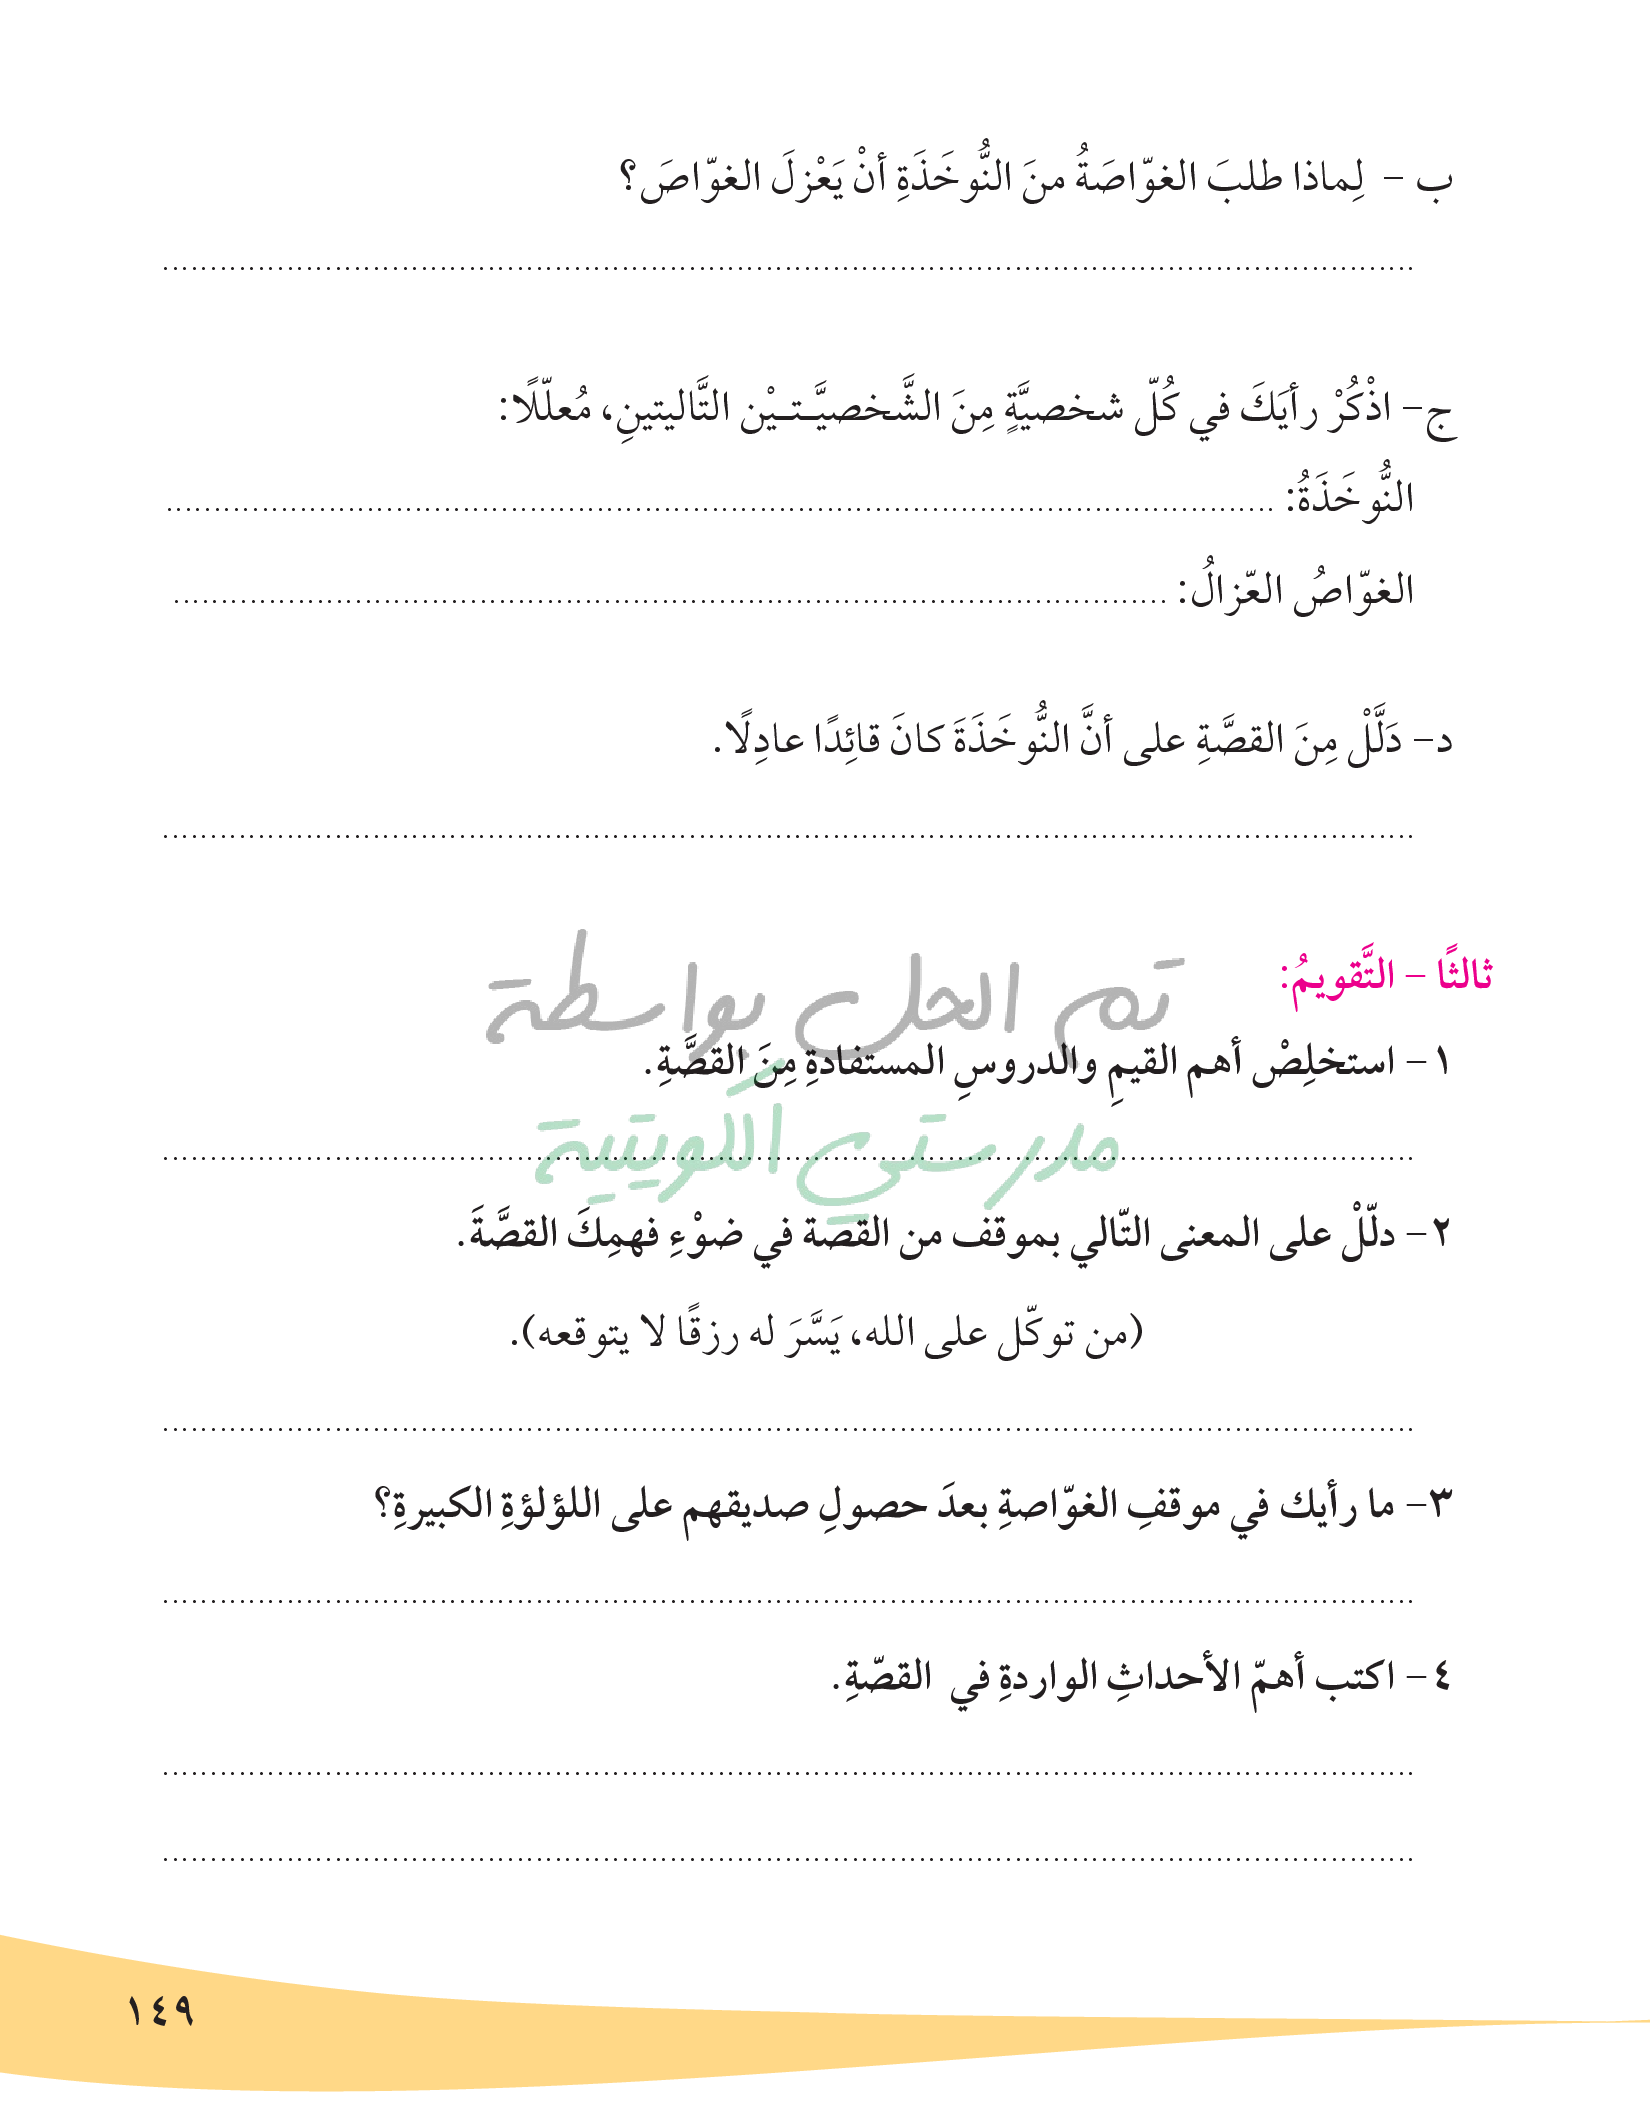 ب - لِماذا طلبَ الغوّاصَةُ منَ النُّوخَذَةِ أنْ يَعْزلَ الغوّاصَ؟
ج- اذْكُرْ رأيَكَ في كُلّ شخصيَّةٍ مِنَ الشَّخصيَّـتـيْن التَّاليتينِ، مُعلّلًا:
النُّوخَذَةُ:
الغوّاصُ العّزالُ:
د- دَلَّلْ مِنَ القصَّةِ على أنَّ النُّوخَذَةَ كانَ قائِدًا عادِلًا.
ثالثًا - التَّقويمُ:
تم الحل بواسطة
١- استخلِصْ أهم القيمِ والدروسِ المستفادةِ مِنَ القصَّةِ.
مدرستي الكويتية
٢- دلّلْ على المعنى التّالي بموقف من القصة في ضوْءِ فهمِكَ القصَّةَ.
(من توكّل على الله، يَسَّرَ له رزقًا لا يتوقعه).
٣- ما رأيك في موقفِ الغوّاصةِ بعدَ حصولِ صديقهم على اللؤلؤةِ الكبيرةِ؟
٤- اكتب أهمّ الأحداثِ الواردةِ في القصّةِ.
١٤٩